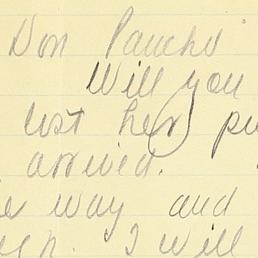 Don Pancho
Will you
lost her pu
arrived.
e way and
I will